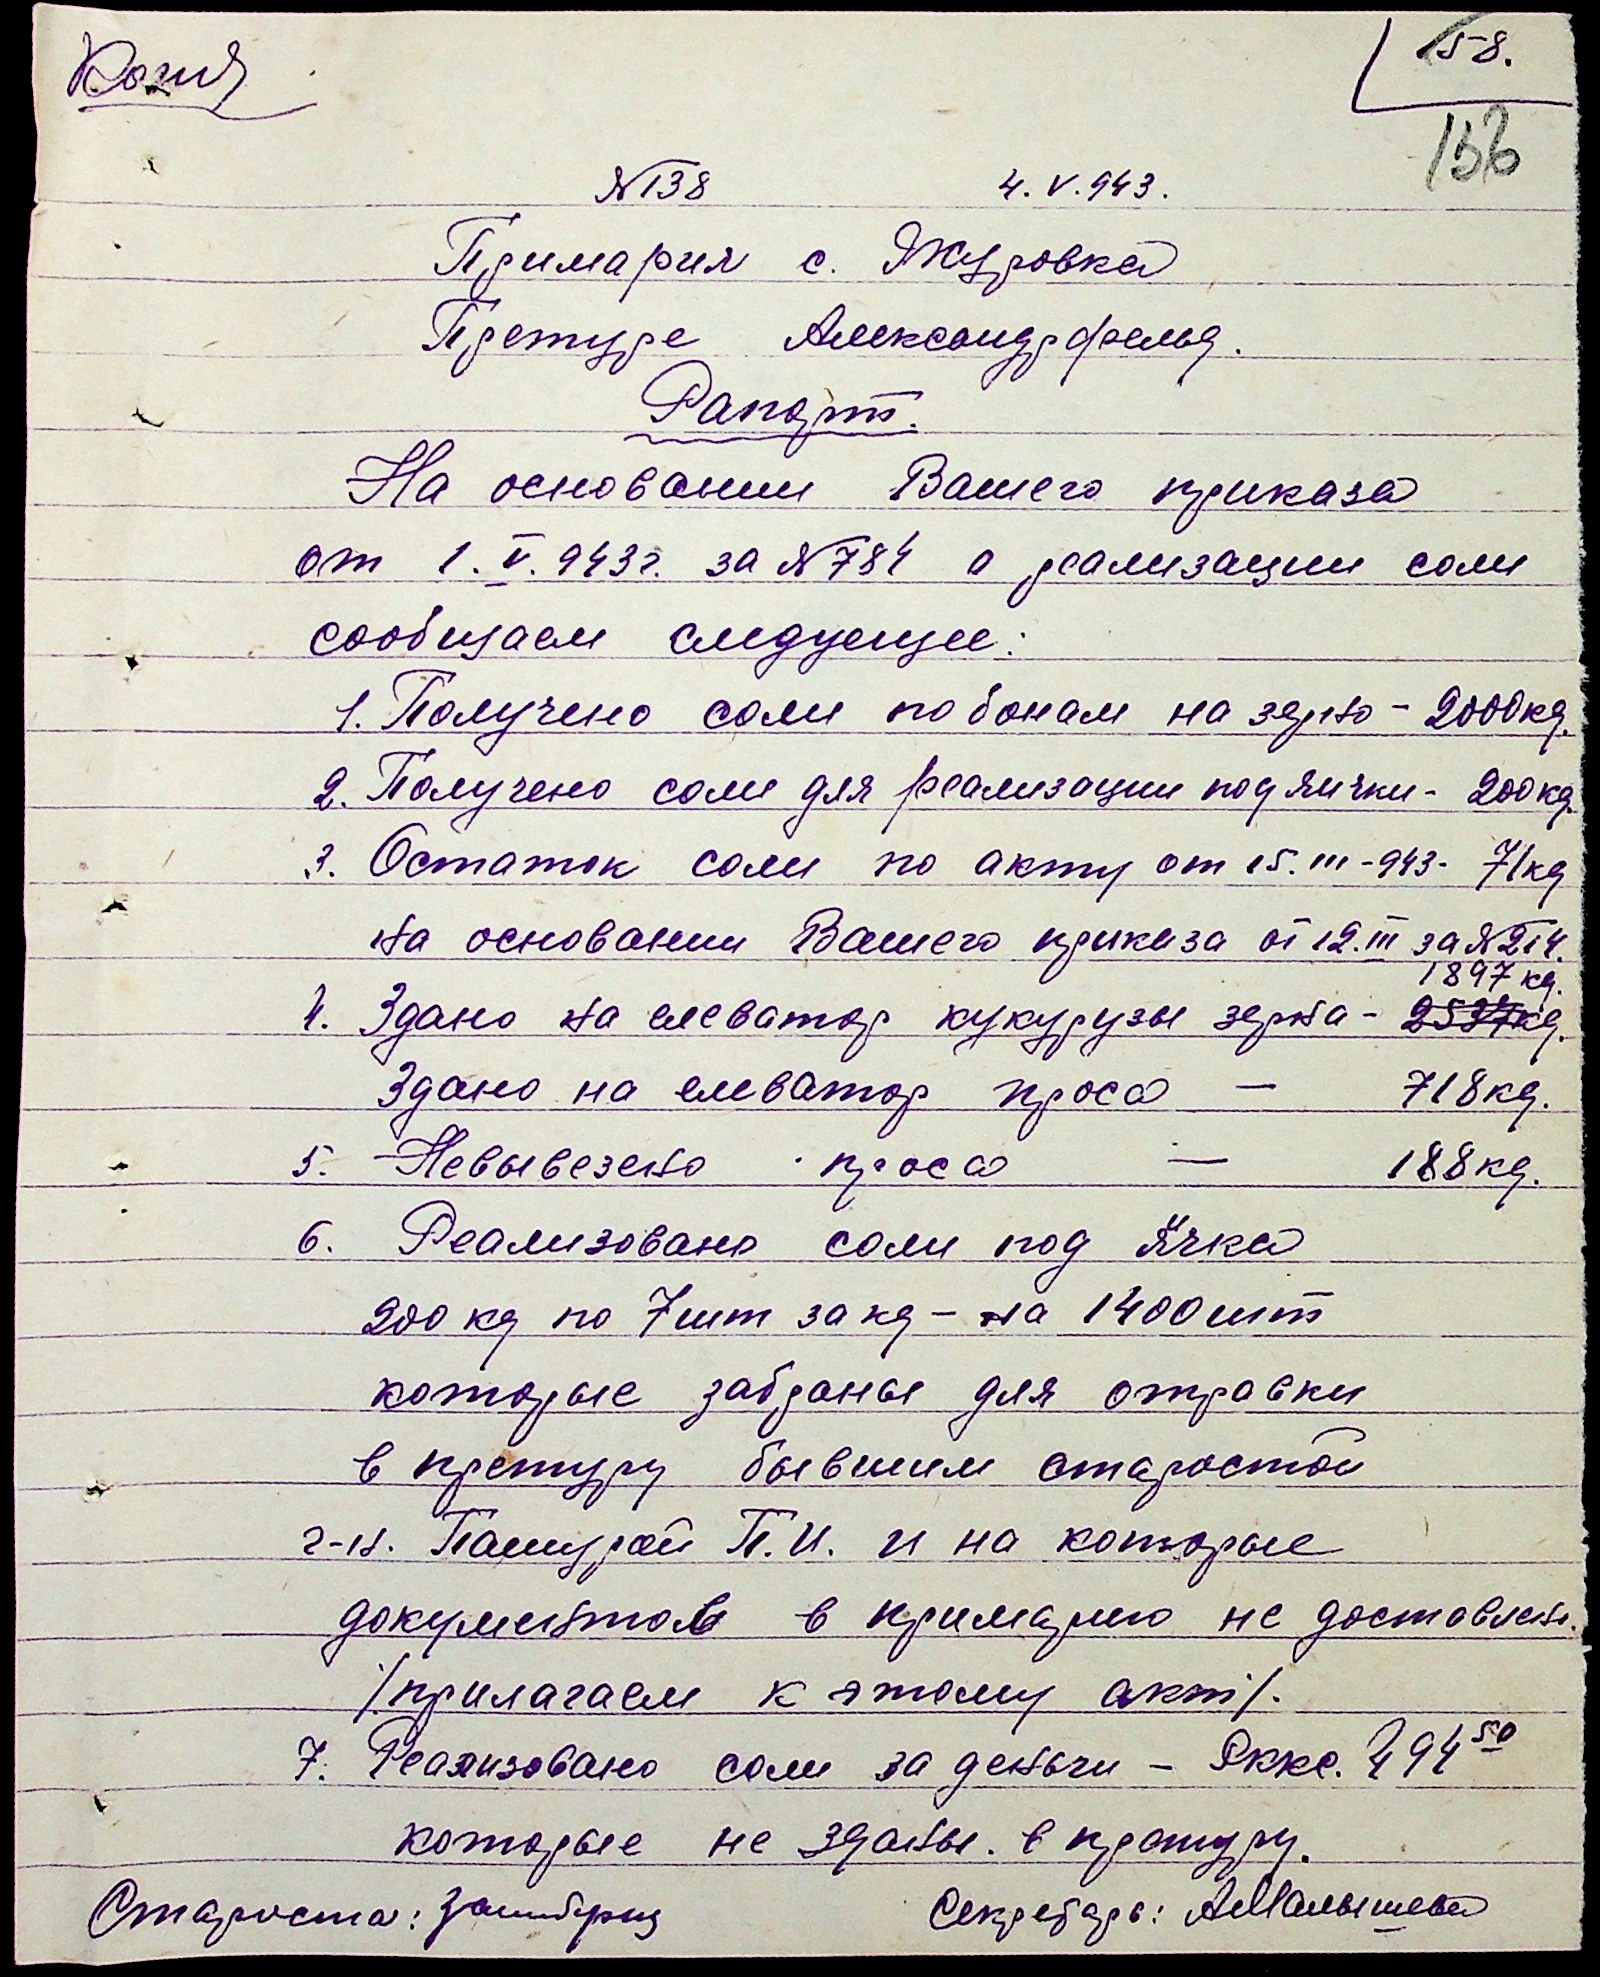 Копия
158.
156
№138 4.V.943.
Примария с. Журовка
Претуре Александрфельд.
Рапорт.
На основании Вашего приказа
от 1.V.943г. за №784 о реализации соли
сообщаем следующее:
1. Получено соли по бонам на зерно - 2000кг.
2. Получено соли для реализации под яички - 200кг.
3. Остаток соли по акту от 15.III-943- 71кг
на основании Вашего приказа от 12.III за №214.
1897 кг.
4. Здано на елеватор кукурузы зерна -
Здано на елеватор проса — 718кг.
5. Невывезено проса — 188кг.
6. Реализовано соли под яйка
200 кг по 7 шт за кг - на 1400 шт
которые забраны для отравки
в претуру бывшим старостой
г-н. Пашурой П.И. и на которые
документов в примарию не доставлен.
/прилагаем к этому акт/.
7. Реализовано соли за деньги - Рккс. 494 50
которые не зданы. в претуру.
Староста: Секретарь: АМалышева